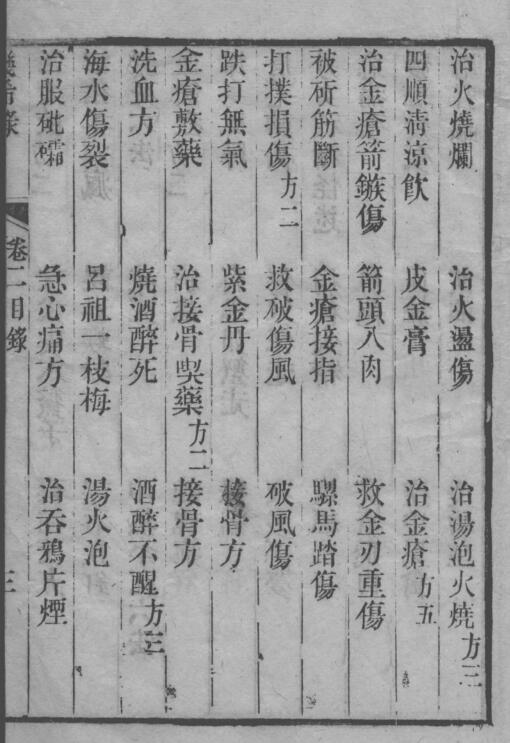 治火燒爛　治火盪傷　治湯泡火燒方三
四順清涼飲　皮金膏　治金瘡方五
治金瘡箭鏃傷　箭頭入肉　救金刃重傷
被斫筋斷　金瘡接指　騾馬踏傷
打撲損傷方二　救破傷風　破風傷
跌打無氣　紫金丹　接骨方
金瘡敷藥　治接骨喫藥方二　接骨方
洗血方　燒酒醉死　酒醉不醒方三
海水傷裂　呂祖一枝梅　湯火泡
治服砒礵　急心痛方　治吞鴉片煙
卷二目錄　三